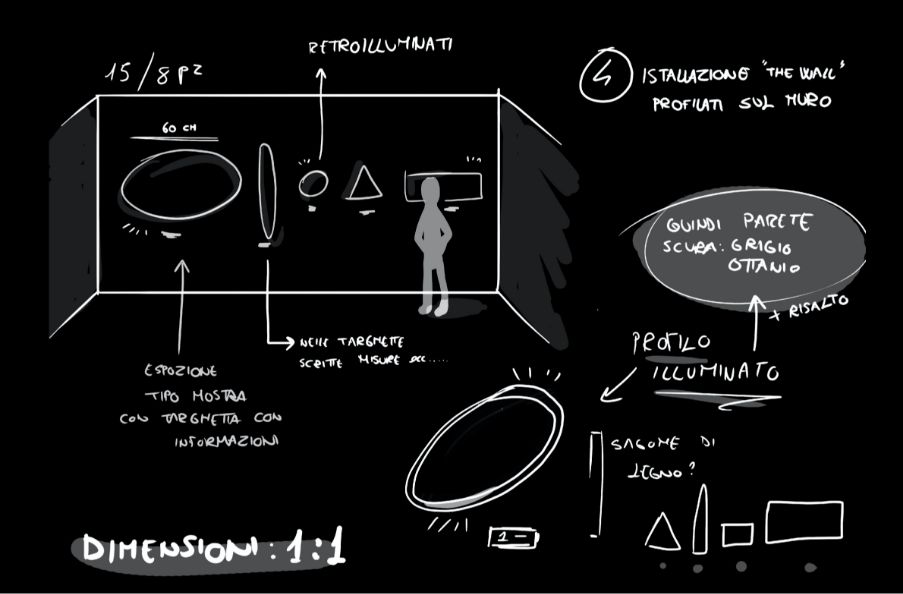 RETROILLUMINATI
15/8 PZ
4 ISTALLAZIONE "THE WALL"
PROFILATI SUL MURO
60 CM
QUINDI PARETE
SCURA: GRIGIO
OTTANIO
+ RISALTO
PROFILO
ILLUMINATO
NELLE TARGHETTE
SCRITTE MISURE ecc.....
ESPOZIONE
TIPO MOSTRA
CON TARGHETTA CON
INFORMAZIONI
SAGOME DI
LEGNO?
1 -
DIMENSIONI: 1:1